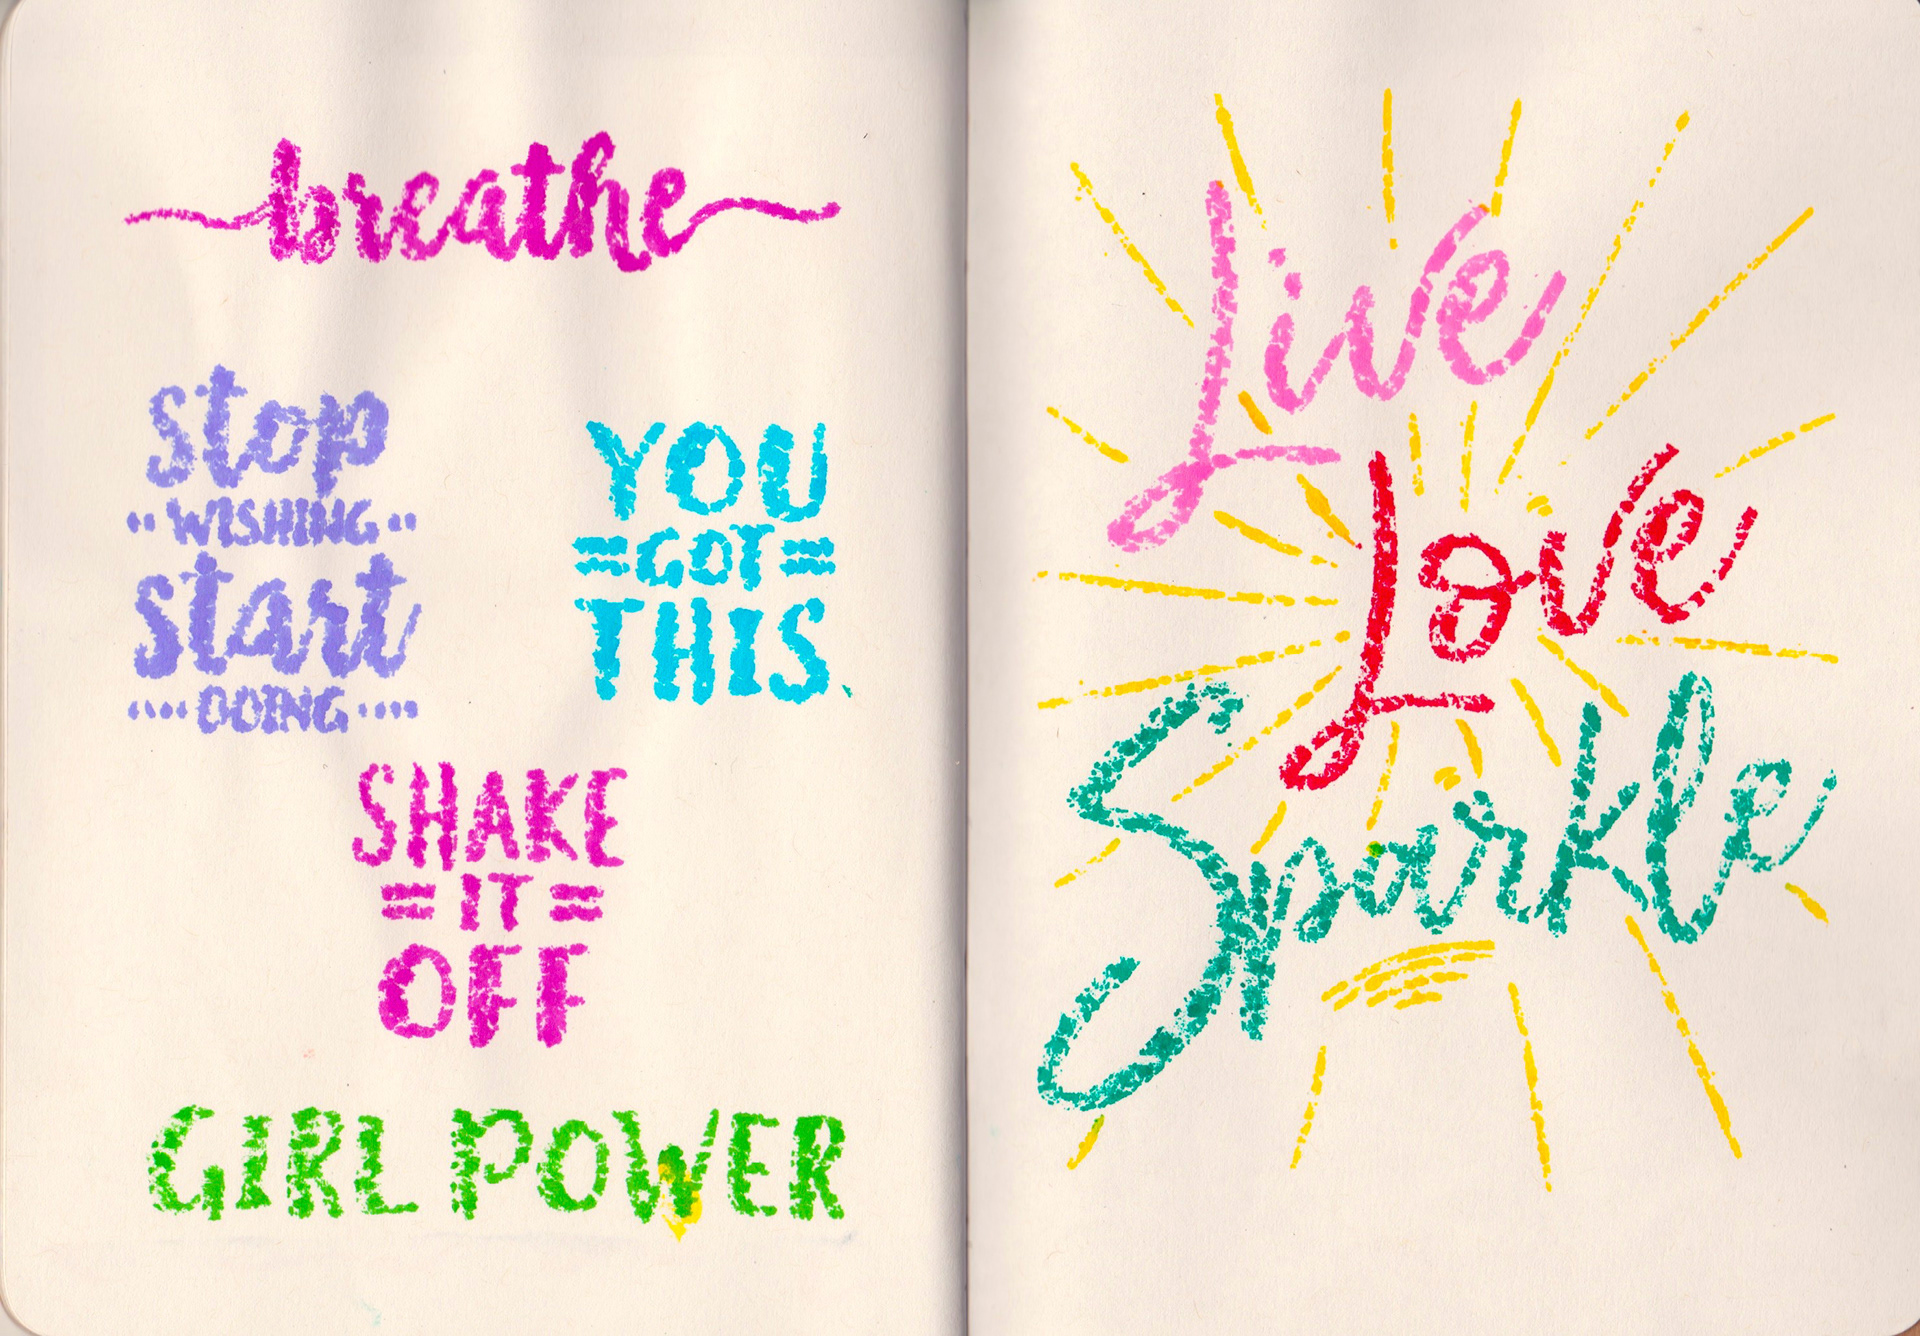 breathe
stop
WISHING
start
DOING
YOU
GOT
THIS
SHAKE
IT
OFF
GIRL POWER
Live
Love
Sparkle